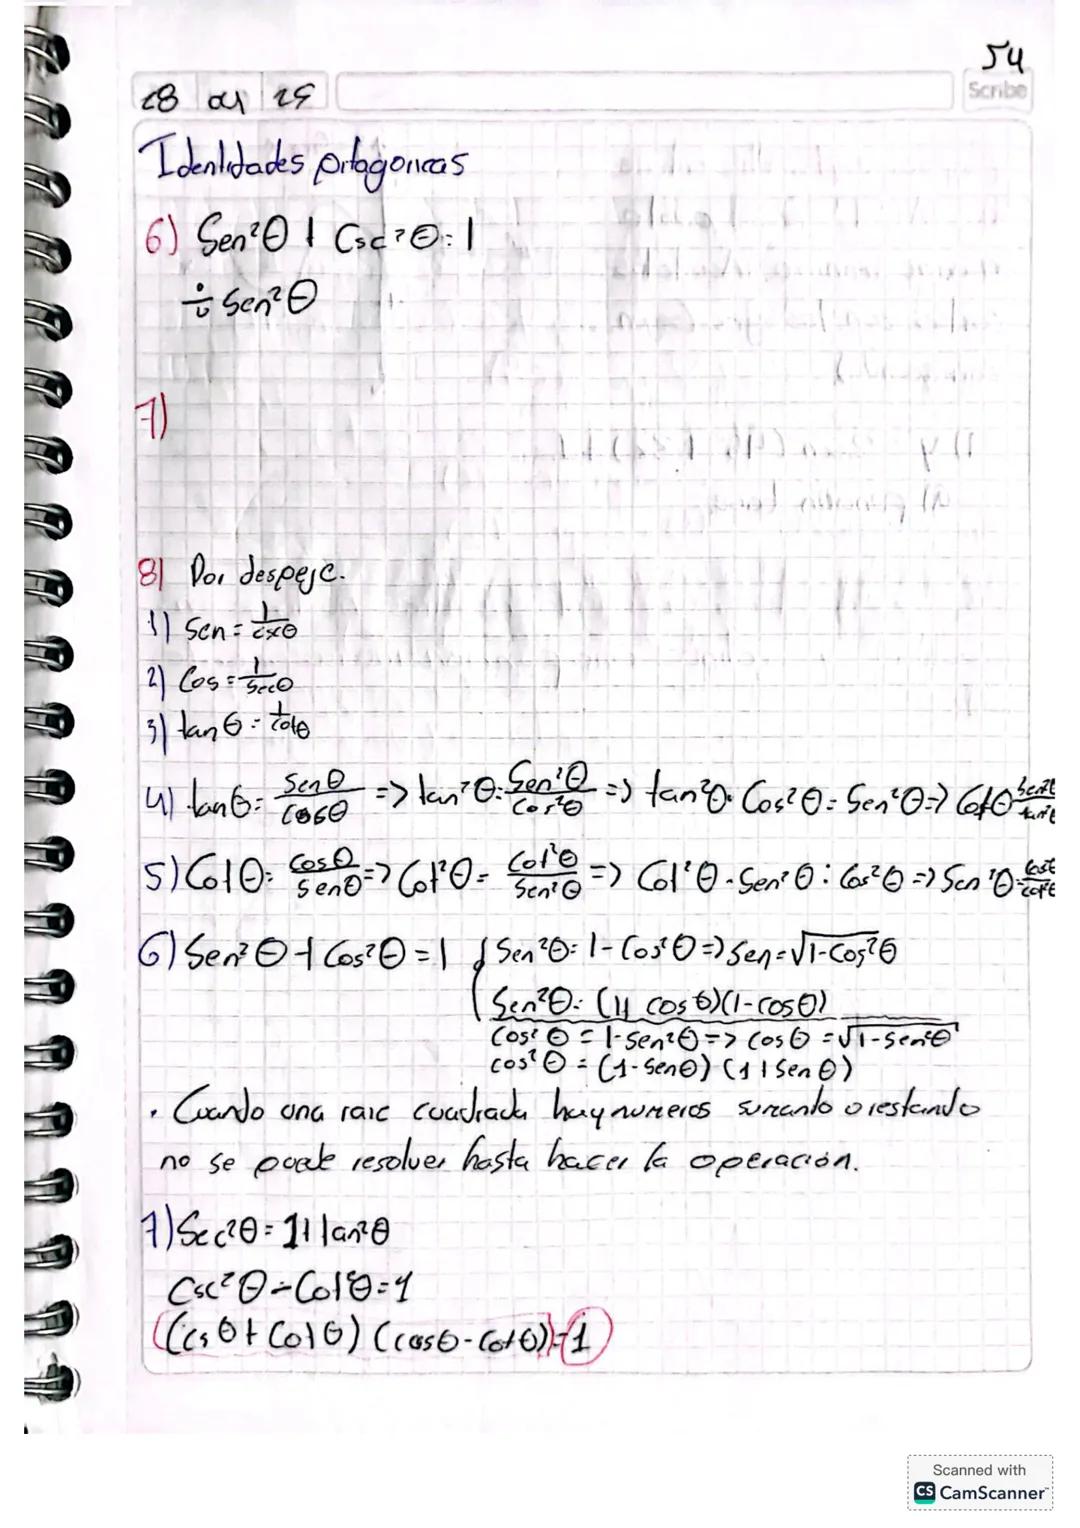 54
28 04 25
Scribe
Identidades pitagoricas
6) Sen²θ + Csc²θ = 1
÷ Sen²θ
7)
8) Por despeje.
1) Sen = 1/cscθ
2) Cos = 1/Secθ
3) tanθ = 1/cotθ
4) tanθ = Senθ/Cosθ => tan²θ = Sen²θ/Cos²θ => tan²θ · Cos²θ = Sen²θ =>
5) Cotθ = Cosθ/Senθ => Cot²θ = Cot²θ/Sen²θ => Cot²θ · Sen²θ = Cos²θ => Sen²θ =
6) Sen²θ + Cos²θ = 1 { Sen²θ = 1 - Cos²θ => Sen = √1-Cos²θ
Sen²θ = (1+cosθ)(1-cosθ)
Cos²θ = 1-Sen²θ => cosθ = √1-Sen²θ
cos²θ = (1-Senθ)(1+Senθ)
• Cuando una raic cuadrada hay numeros sumando o restando
no se puede resolver hasta hacer la operación.
7) Sec²θ = 1+tan²θ
Csc²θ - Cot²θ = 1
(Ccsθ + Cotθ)(cosθ - Cotθ) = 1
Scanned with
CS CamScanner